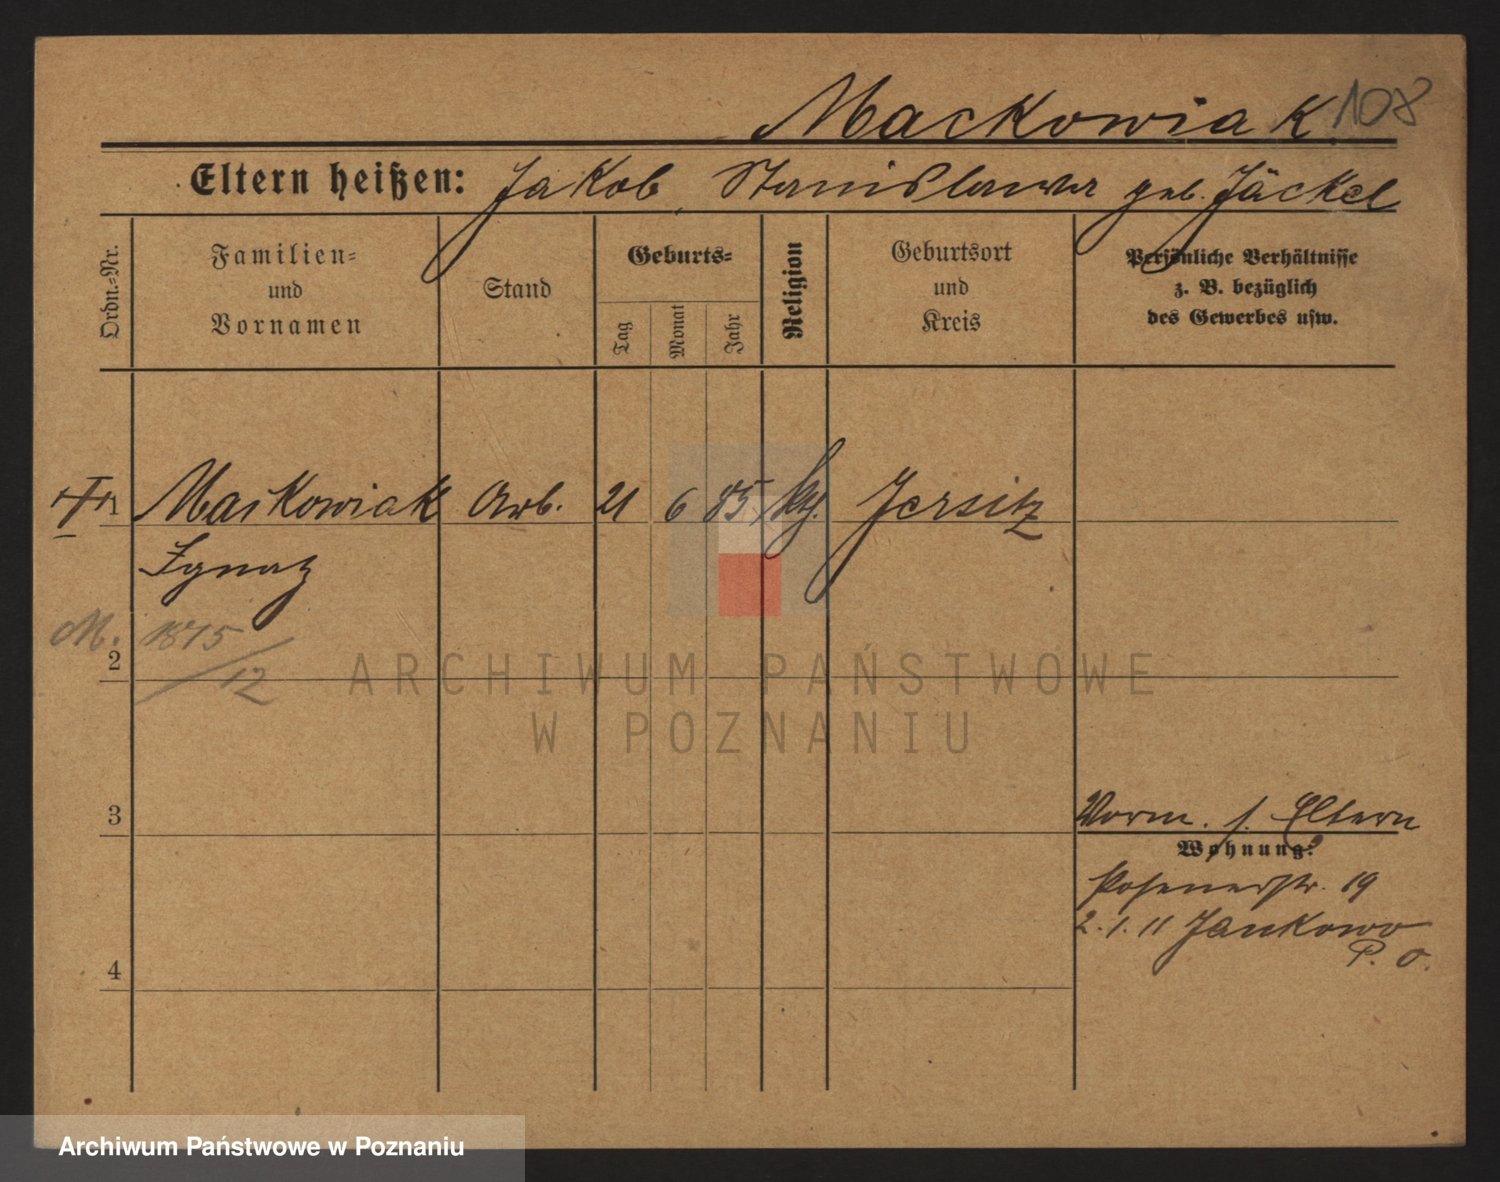 Mackowiak 108
Eltern heißen: Jakob, Stanislawa geb. Jäckel
Ordn.-Nr.
Familien-
und
Vornamen
Stand
Geburts-
Tag
Monat
Jahr
Religion
Geburtsort
und
Kreis
Persönliche Verhältnisse
z. B. bezüglich
des Gewerbes usw.
1 Maćkowiak Arb. 21 6 85 kth. Jersitz
Ignatz
M. 1875/12
2
ARCHIWUM PAŃSTWOWE
W POZNANIU
3
Vorm. s. Eltern
Wohnung:
Posenerstr. 19
4
2.1.11 Jankowo
P. O.
Archiwum Państwowe w Poznaniu